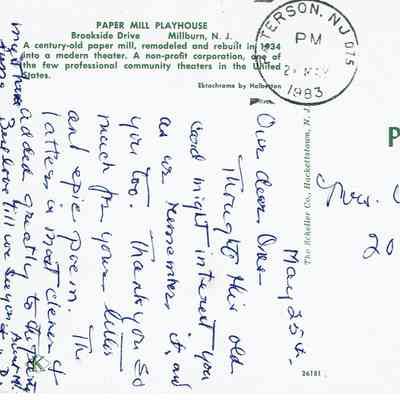 PAPER MILL PLAYHOUSE
Brookside Drive Millburn, N. J.
A century-old paper mill, remodeled and rebuilt in 1934
into a modern theater. A non-profit corporation, one of
the few professional community theaters in the United
States.
Ektachrome by Halberton
TERSON, N.J. 075
PM
MAY
1983
The Scheller Co., Hackettstown, N. J.
P
Mrs.
20
26781
K
May 25th -
Our dear Ones -
Thought this old
card might interest you
as we remember it, and
you too. Thank you so
much for your letter
and epic poem. The
latter is most clever &
added greatly to the